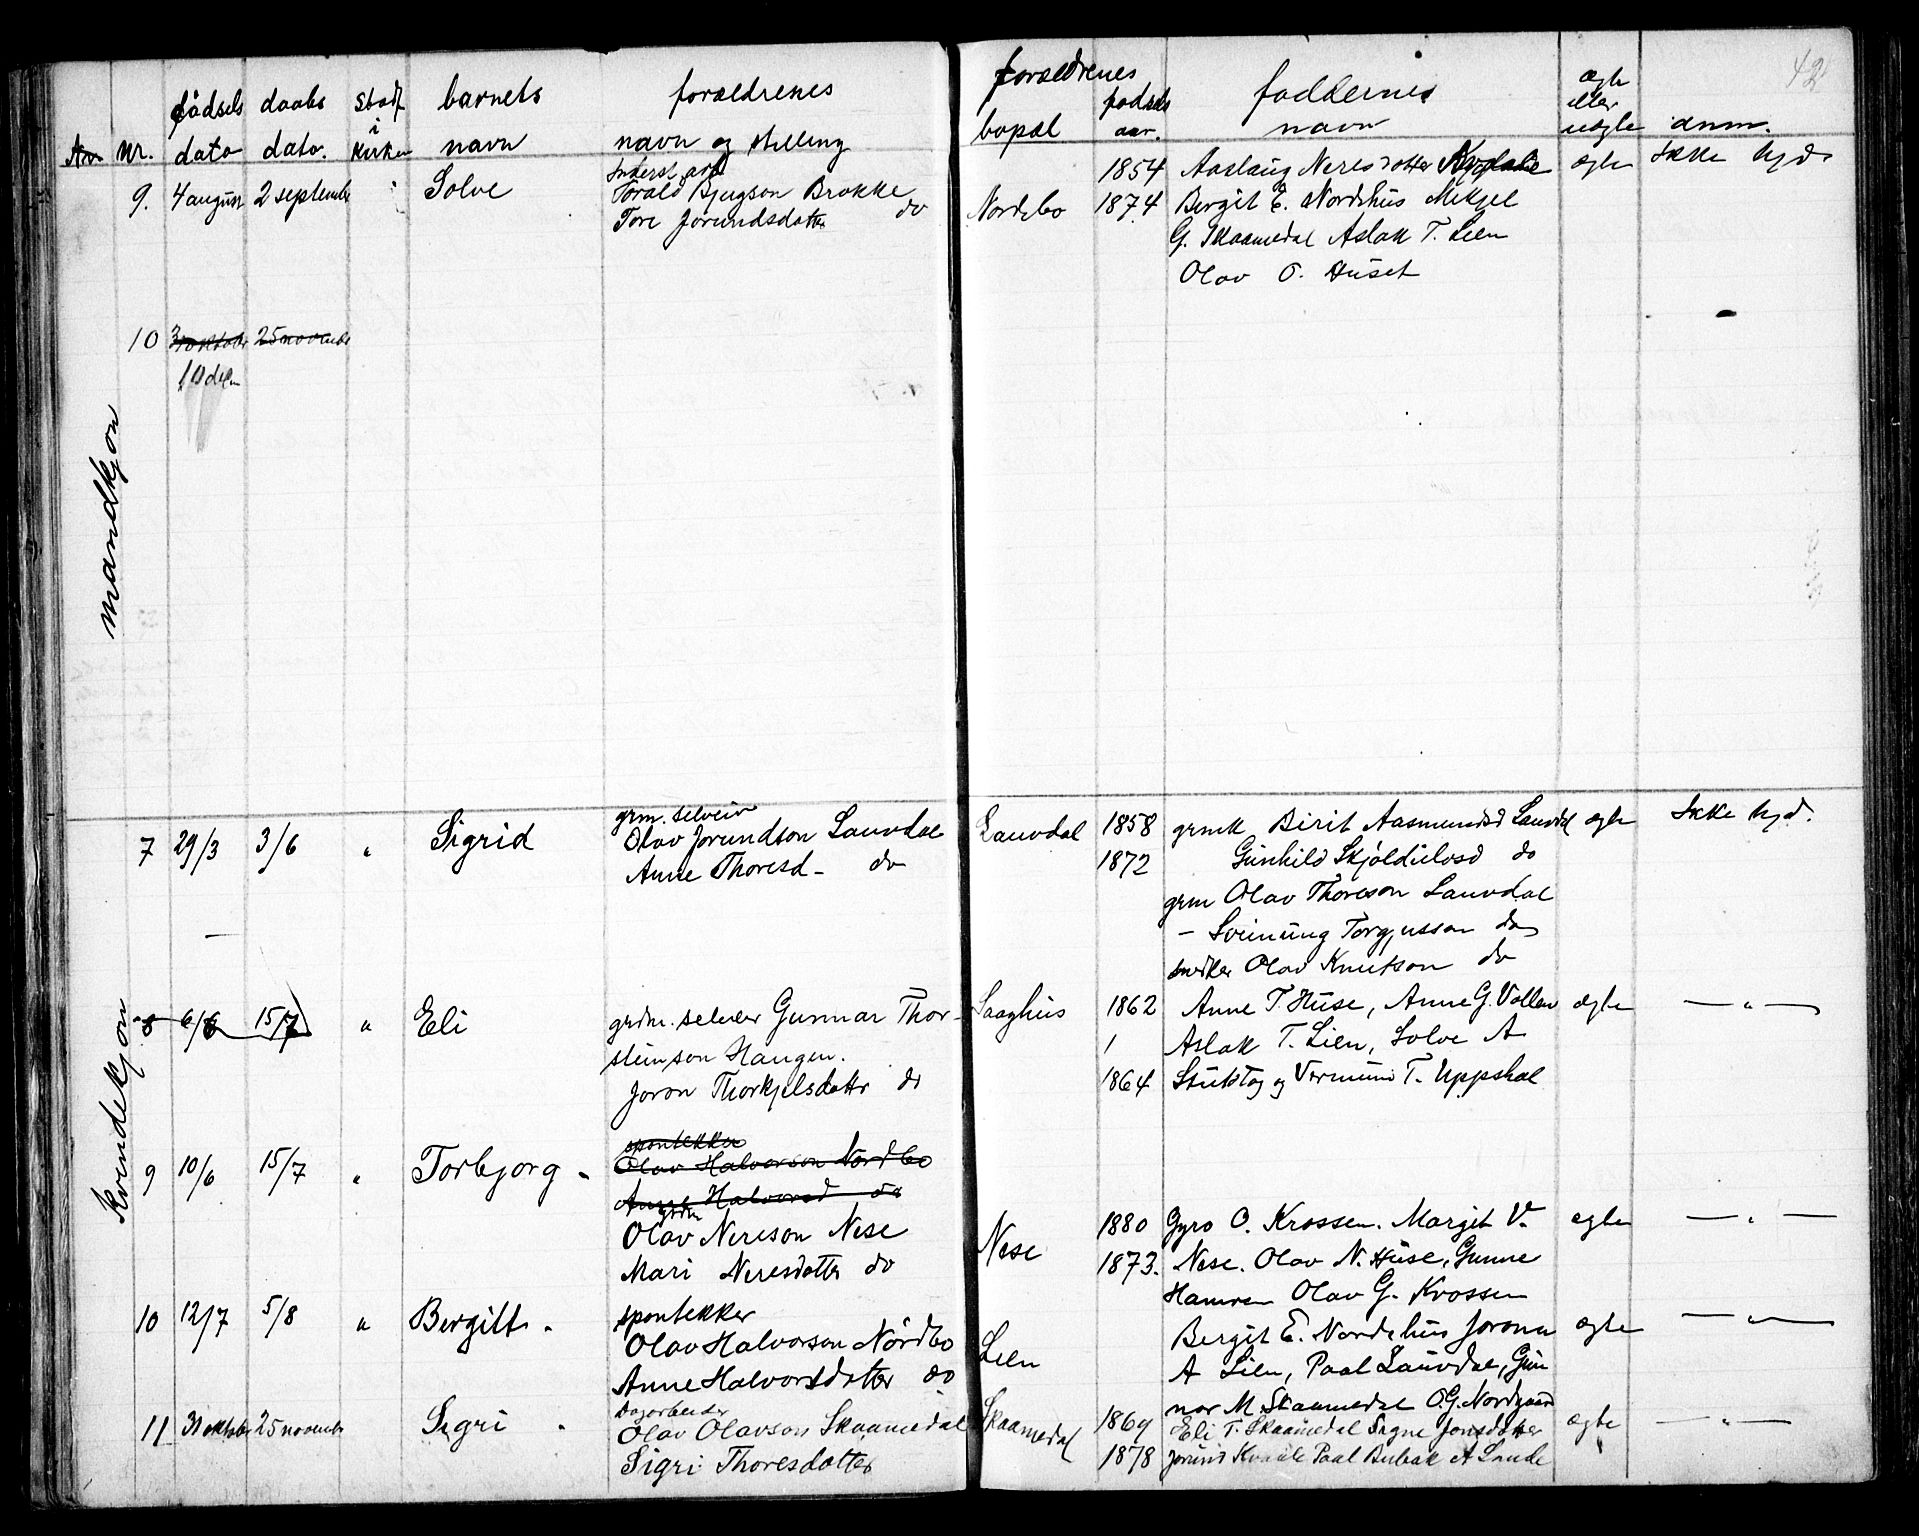 42
fødsels daabs stad barnets forældrenes
i
Nr. dato dato. Kirken navn navn og stilling
9. 4 august 2 september Solve
Torald Bjugson Brokke
Tore Jorundsdatter do
10 3 oktober 25 november
10
mandkjøn
grm. selveier
7 29/3 3/6 " Sigrid Olav Jorundson Lauvdal
Anne Thoresd - do
Kvindekjøn
8 6/6 15/7 " Eli grdm. selveier Gunnar Thor-
steinson Haugen.
Joron Thorkjelsdattr do
spontekker
9 10/6 15/7 " Torbjorg - Olav Halvorson Nordbo
Halvorsd do
Olav Nereson Nese
Mari Neresdatter do
10 12/7 5/8 " Bergitt - spontekker
Olav Halvorson Nordbo
Anne Halvorsdatter do
Dagarbeider
11 31 oktober 25 november Sigri - Olav Olavson Skaamedal
Sigri Thoresdatter
forældrenes faddernes ægte
eller
bopæl fødsels aar. navn uægte anm.
1854 Aaslaug Neresdotter ægte Ikke hjd.
Nordebo 1874 Bergit E. Nordehus Mekjel
G. Skaamedal Aslak T. Lien
Olav O. Huset
Lauvdal 1858 grmk Birit Aasmundsd Lauvdal ægte Ikke hjd.
1872 Gunhild do
grm Olav Thoreson Lauvdal
- Sveinung Torgjusson do
Olav Knutson do
Saaghus 1862 Anne T. Huse, Anne G. Vollen ægte — " —
1 Aslak T. Lien, Solve A
1864 og T. Uppstal
1880 Gyro O. Krossen. Margit V. ægte — " —
Nese 1873. Nese. Olav N. Huse, Gunne
Hamren Olav G. Krossen
Bergit E. Nordehus Joronn ægte — " —
Lien A Lien, Paal Lauvdal, Gun
nor M. Skaamedal O.G. Nordgaard
Skaamedal 1869 Eli T. Skaamedal Signe Jonsdotter ægte — " —
1878 Kvaale Paal Bubak A Lunde